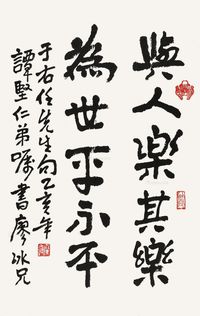 與人樂其樂
為世平不平
于右任先生句乙亥年
譚堅仁弟嘱書廖冰兄